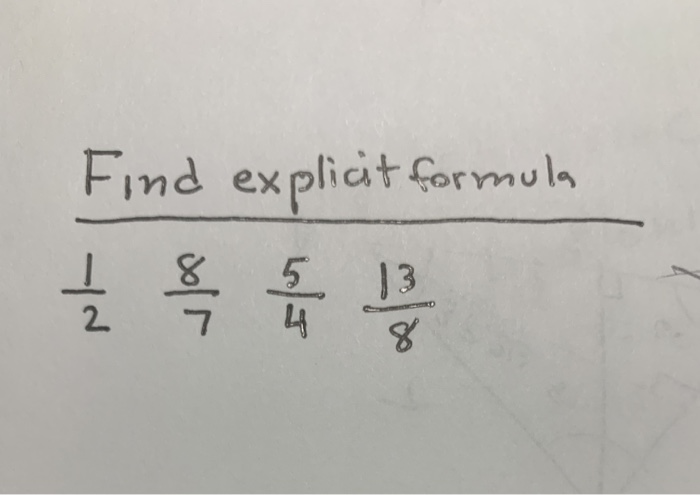 Find explicit formula
1/2 8/7 5/4 13/8